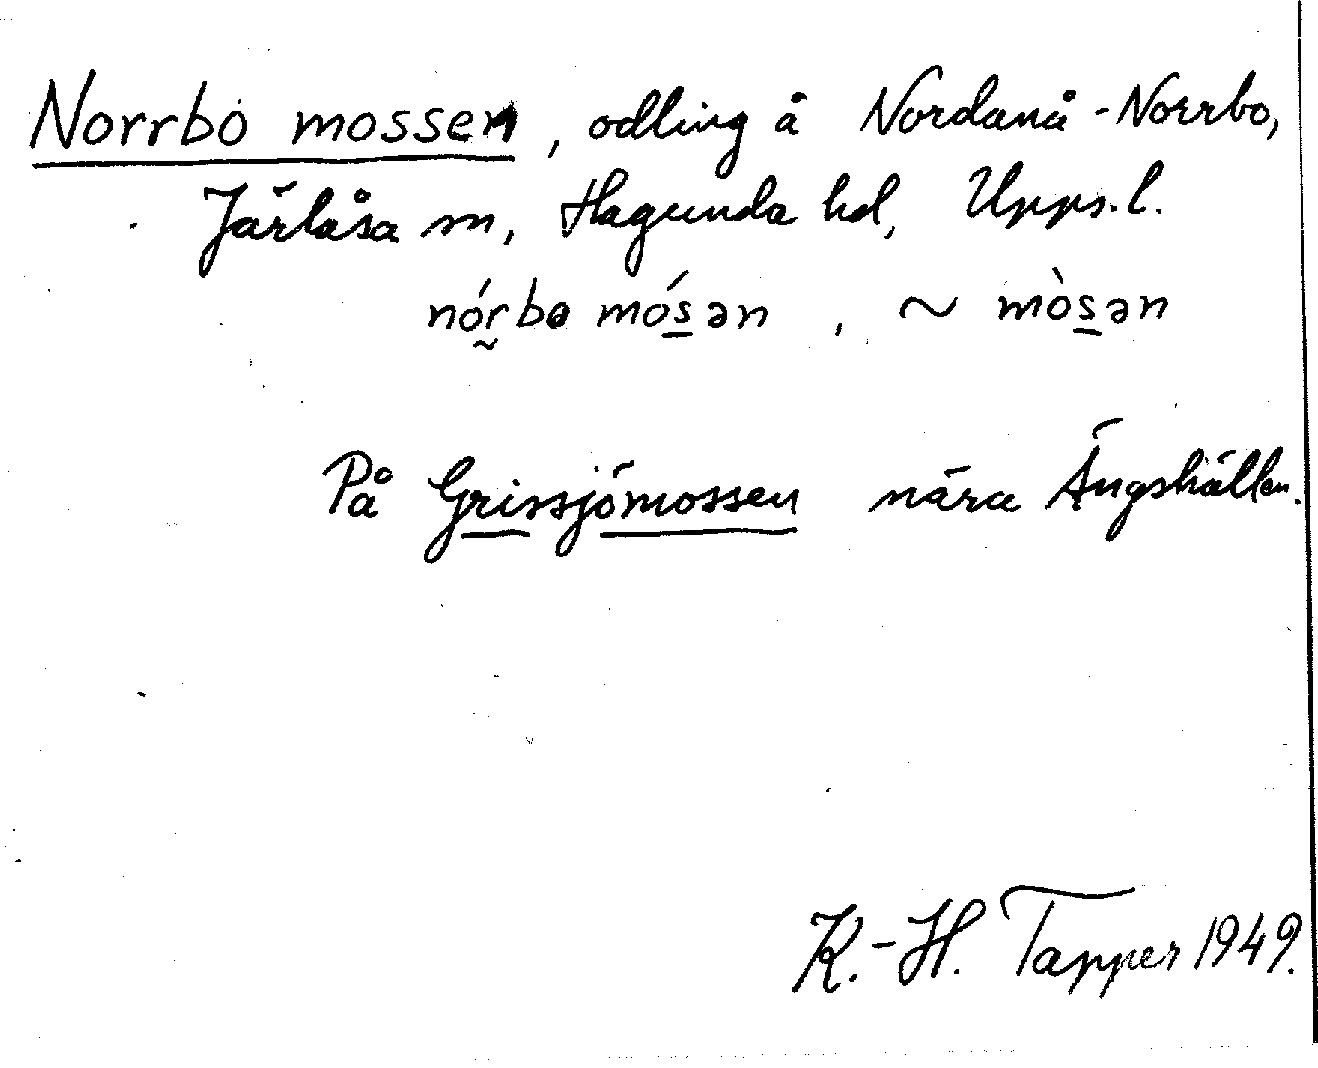 Norrbo mossen, odling å Nordanå-Norrbo,
Järlåsa sn, Hagunda hd, Upps. l.
nór̰bo mós̲ən, ~ mòs̲ən
På Grissjömossen nära Ängshällen.
K.-H. Tapper 1949.